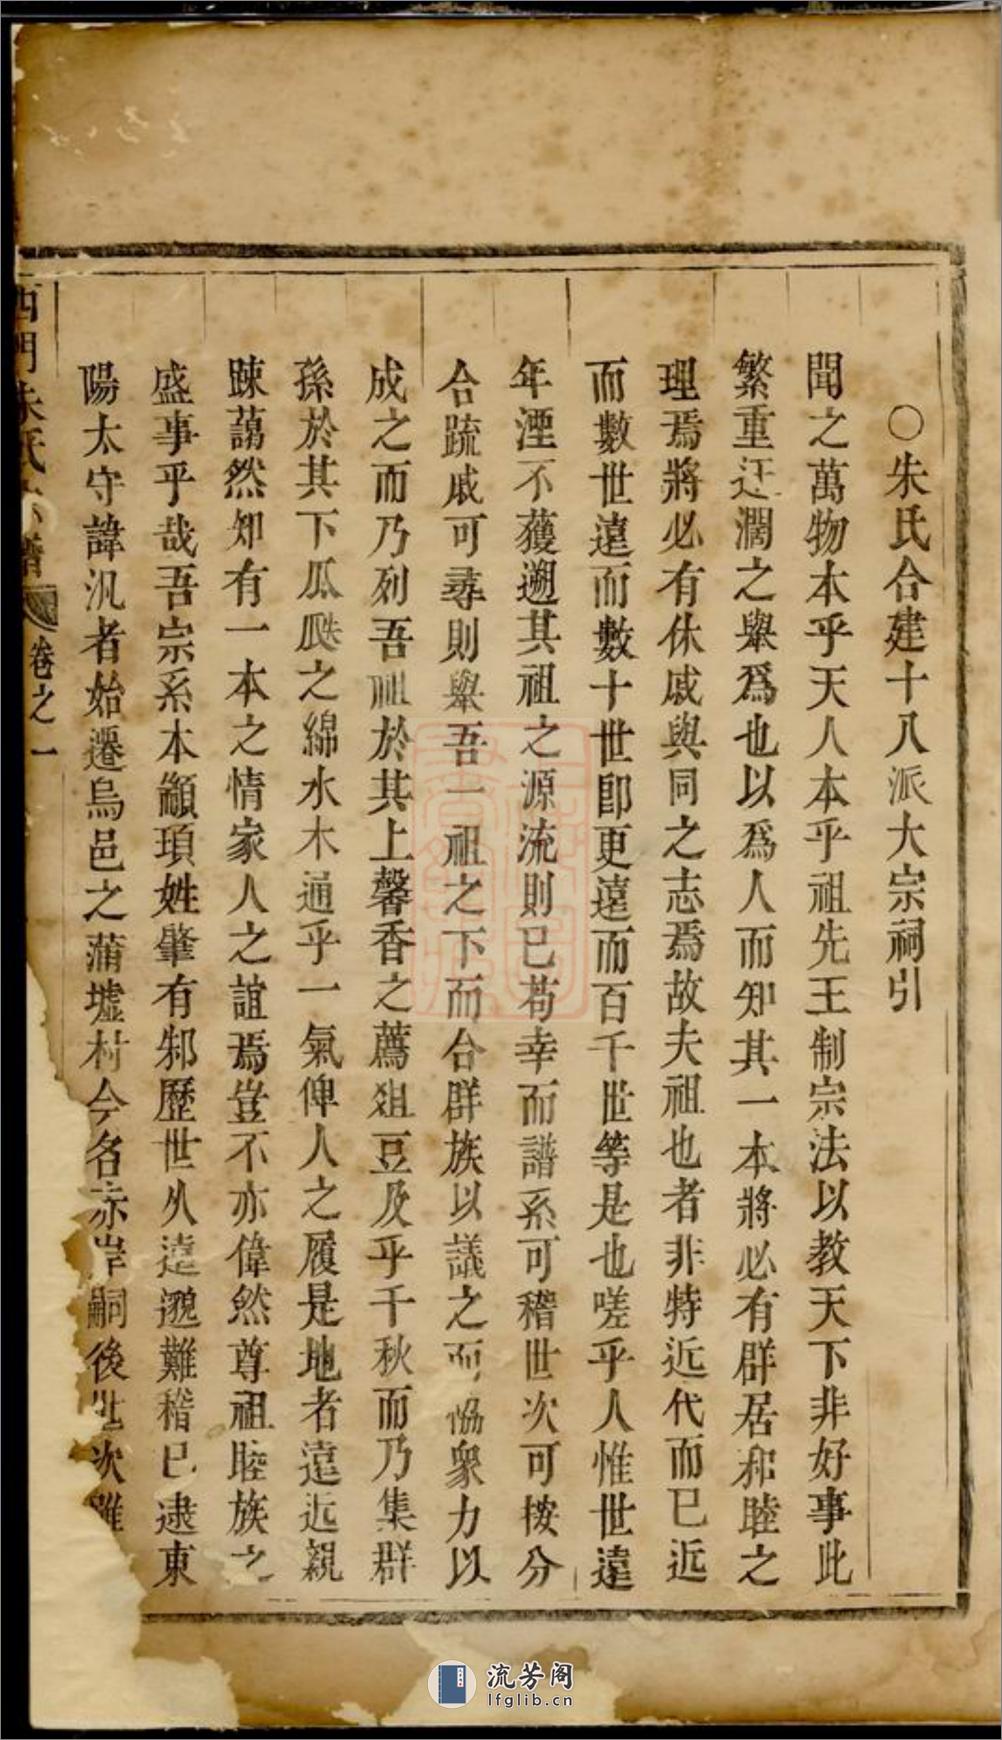 ○朱氏合建十八派大宗祠引
聞之萬物本乎天人本乎祖先王制宗法以教天下非好事此
繁重迂濶之舉爲也以爲人而知其一本將必有群居和睦之
理焉將必有休戚與同之志焉故夫祖也者非特近代而已近
而數世遠而數十世卽更遠而百千世等是也嗟乎人惟世遠
年湮不獲遡其祖之源流則已苟幸而譜系可稽世次可按分
合疏戚可尋則舉吾一祖之下而合群族以議之而恊衆力以
成之而乃列吾祖於其上馨香之薦俎豆及乎千秋而乃集群
孫於其下瓜瓞之綿水木通乎一氣俾人之履是地者遠近親
踈藹然知有一本之情家人之誼焉豈不亦偉然尊祖睦族之
盛事乎哉吾宗系本顓頊姓肇有邾歷世乆遠邈難稽已逮東
陽太守諱汎者始遷烏邑之蒲墟村今名赤岸嗣後世次雖
西門朱氏 譜 卷之一
流芳阁
lfglib.cn